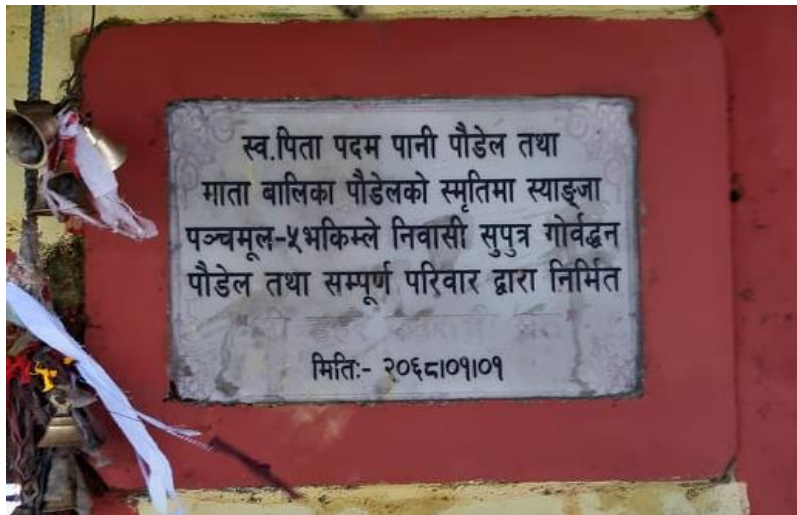 स्व.पिता पदम पानी पौडेल तथा
माता बालिका पौडेलको स्मृतिमा स्याङ्जा
पञ्चमूल-५भकिम्ले निवासी सुपुत्र गोर्वद्धन
पौडेल तथा सम्पूर्ण परिवार द्वारा निर्मित
मितिः- २०६८।०१।०१